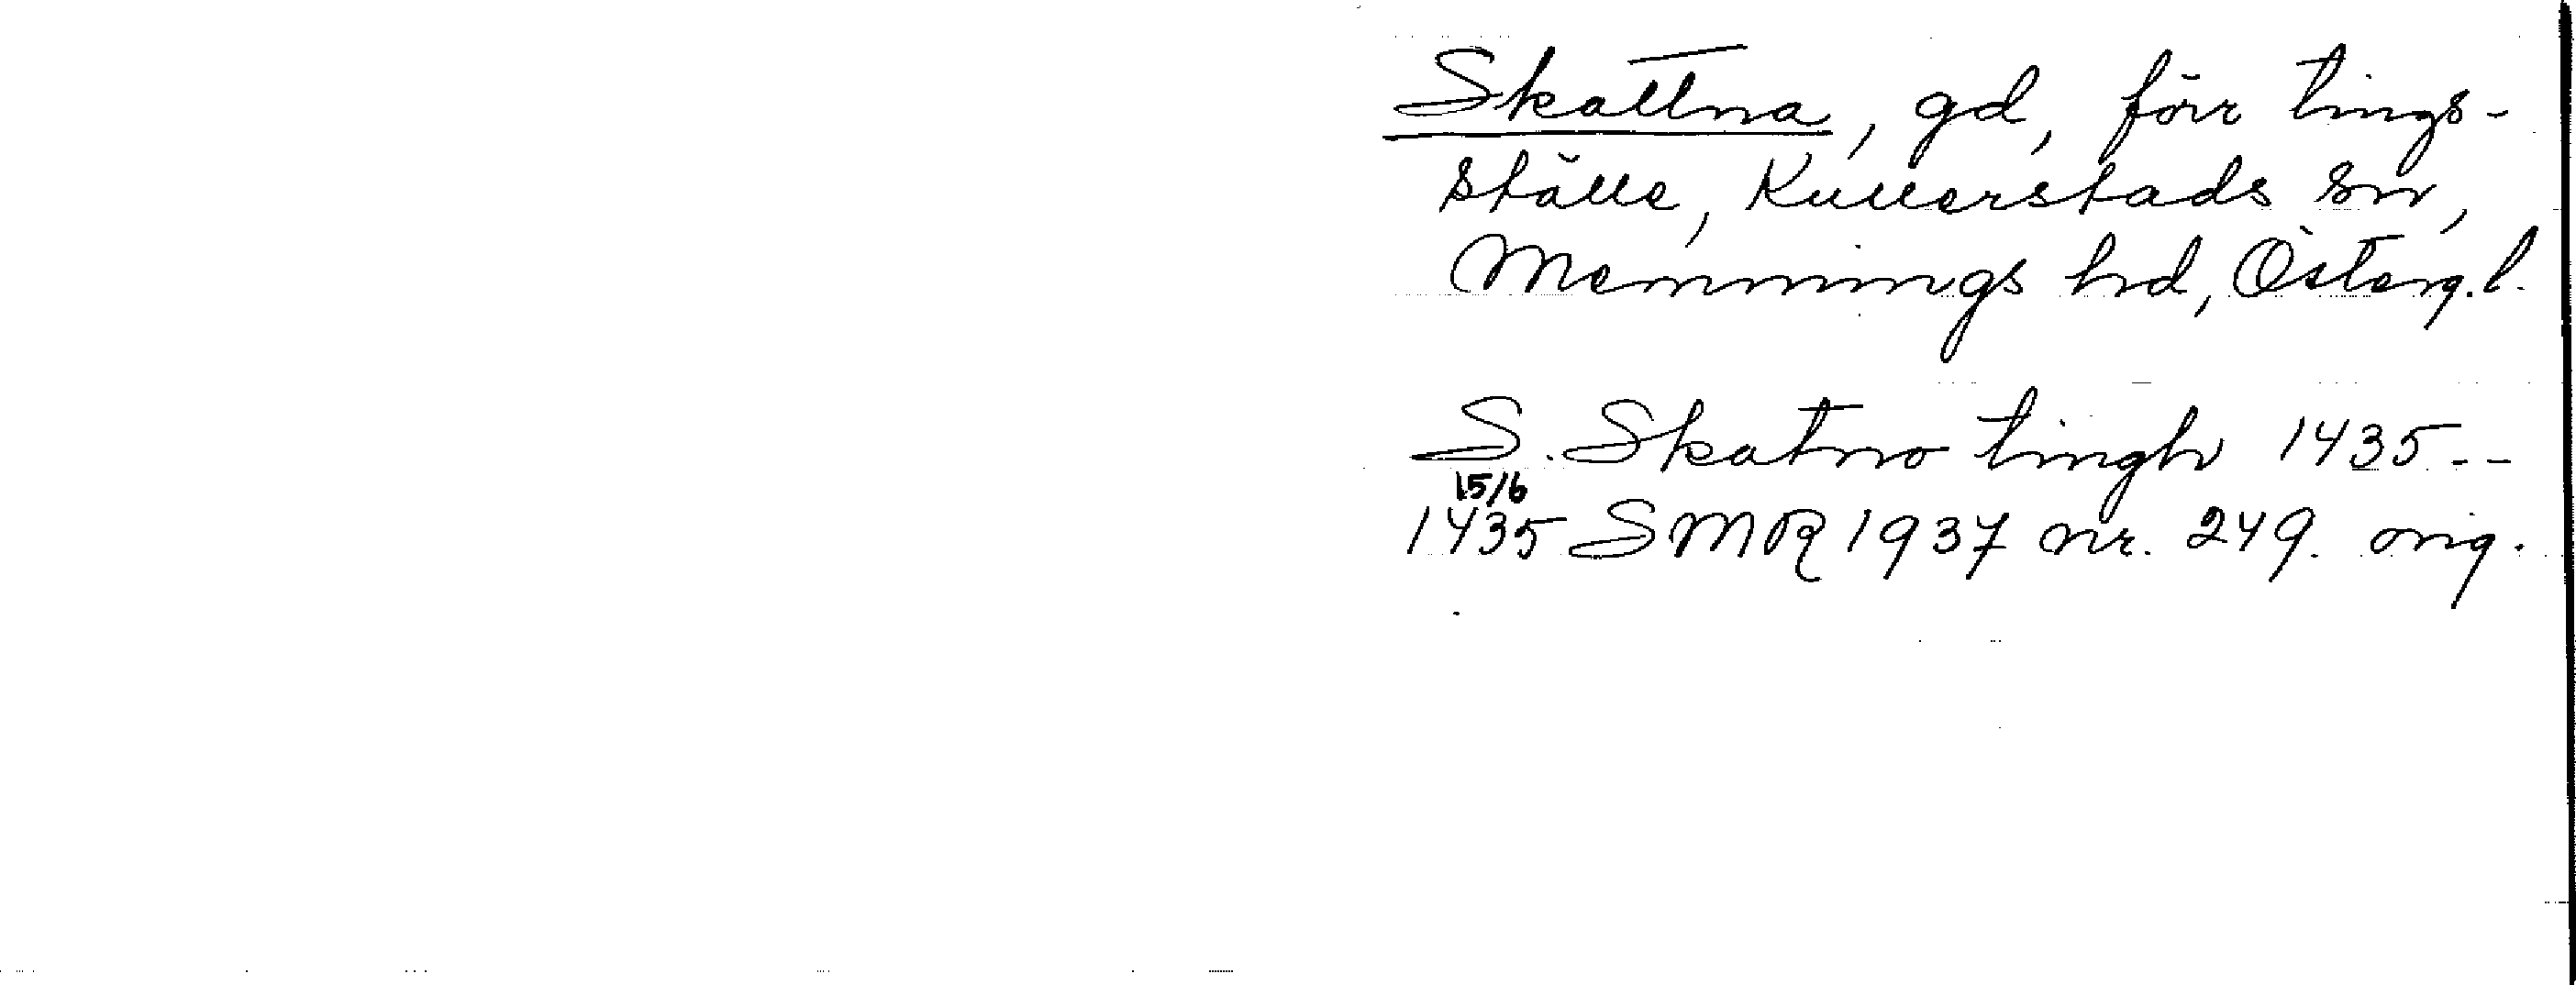 Skattna, gd, förr tings-
ställe, Kullerstads sn,
Memmings hd, Österg. l.
S. Skatno tingh 1435--
15/6
1435 SMR 1937 nr. 249. orig.